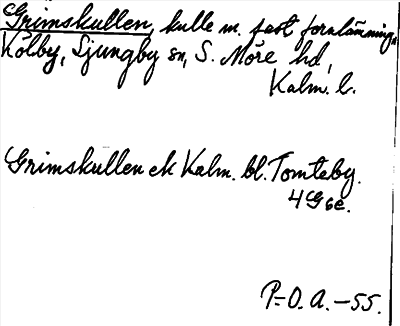 Grimskullen, kulle m. fast fornlämning,
Kölby, Ljungby sn, S. Möre hd,
Kalm. l.
Grimskullen ek Kalm. bl. Tomteby.
4G6e.
P-O. A. -55.